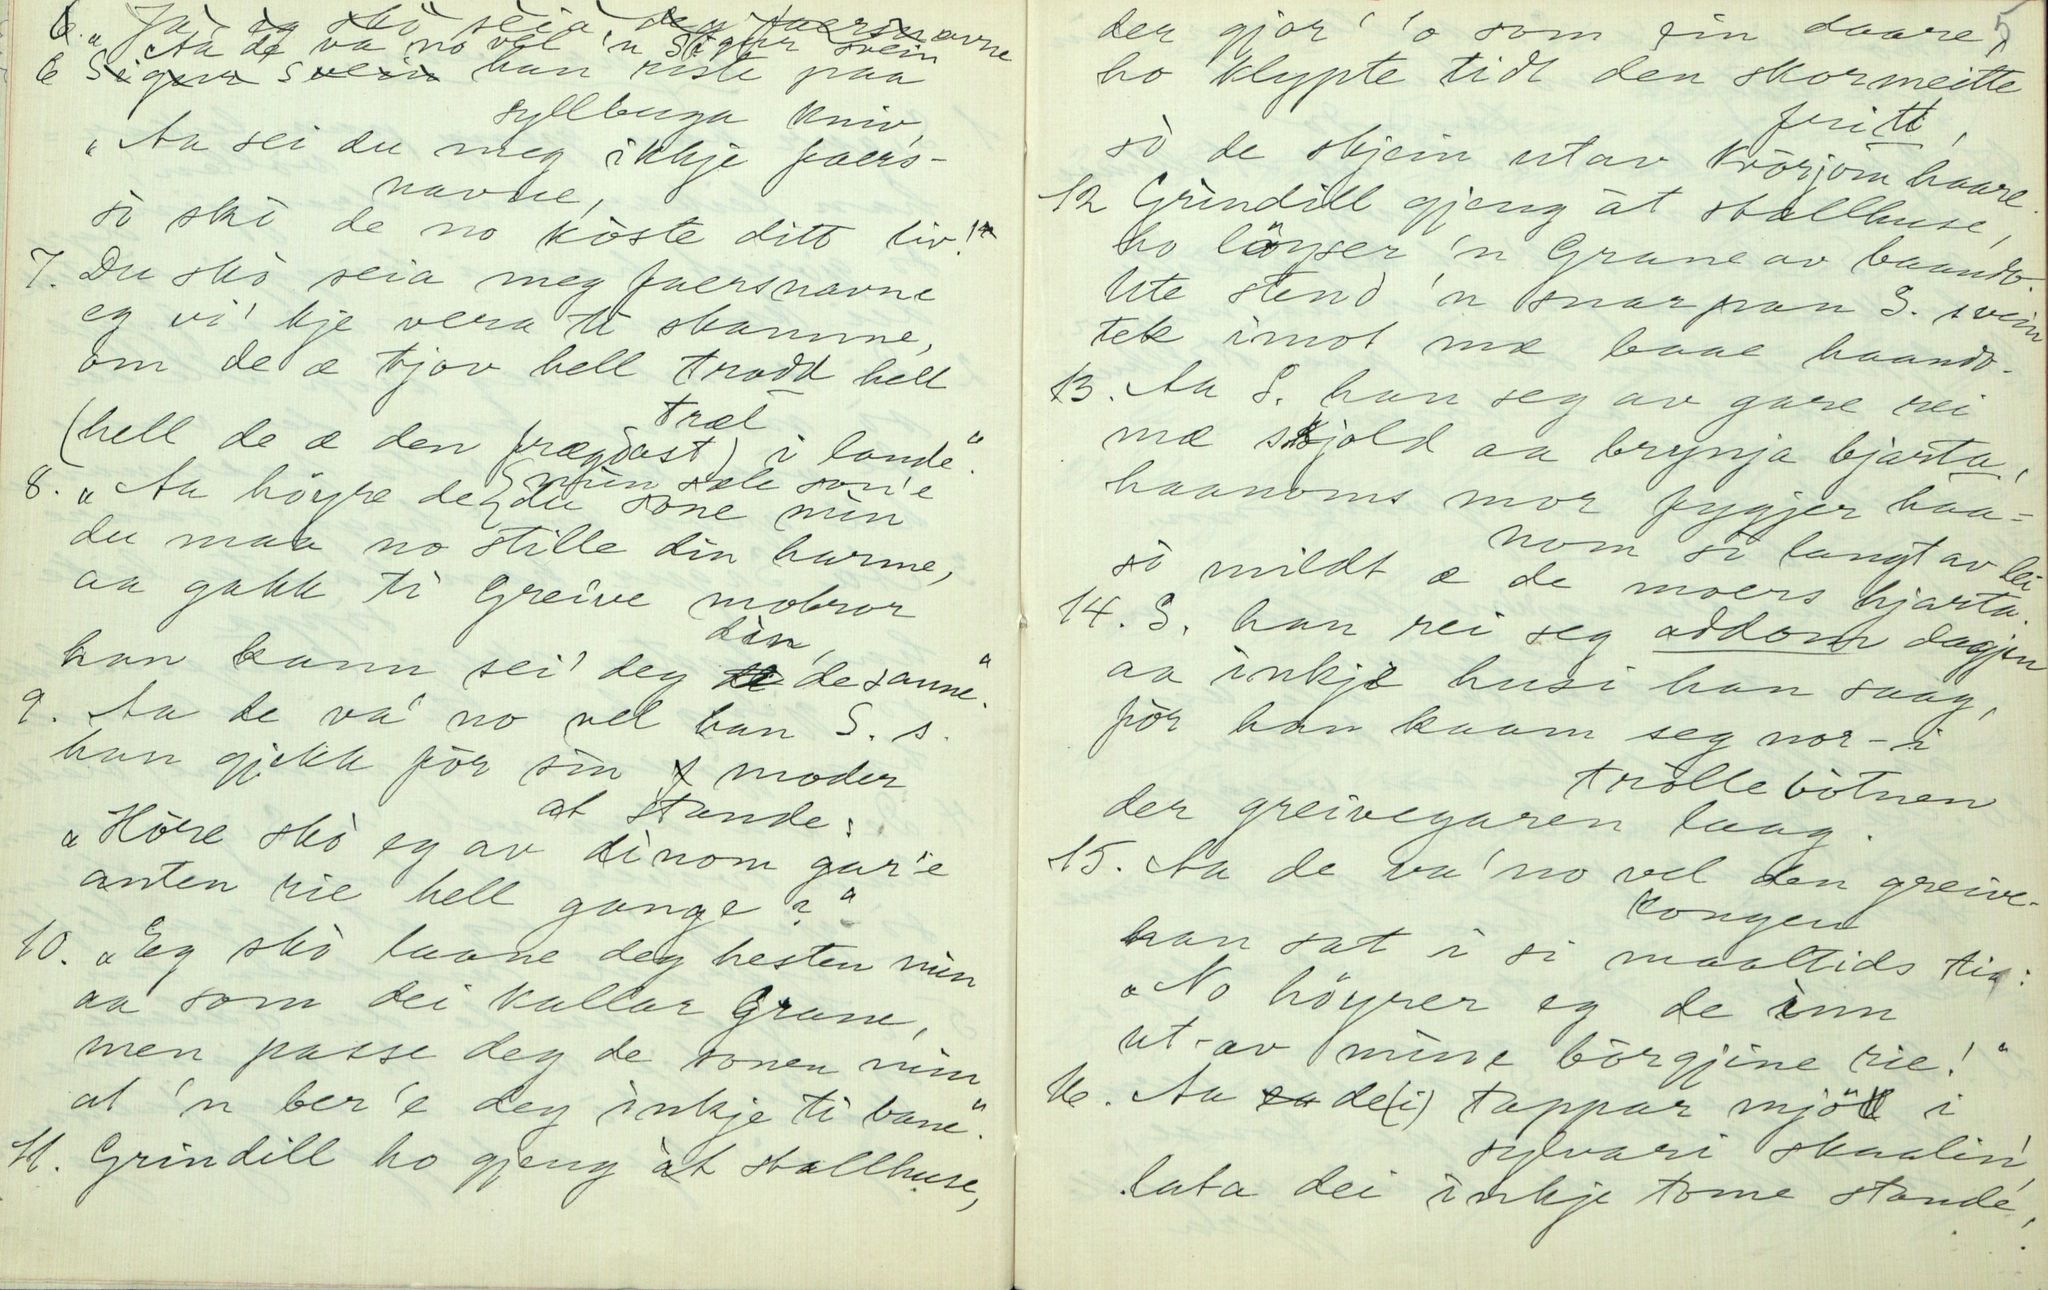 6. „Ja eg skò seia deg faersnavne
Aa de va no vel 'n Sigur svein
6 Sigur Svein han riste paa
syllbuga kniv,
„Aa sei du meg ikkje faers-
navne,
sò skò de no kòste ditt liv!"
7. Du skò seia meg faersnavne
eg vi' kje vera ti skamme,
om de æ tjov hell trodd hell
træl
(hell de æ den frægjast) i lande."
min sæle son'e
8. „Aa höyre deg du sone min
du maa no stille din harme,
aa gakk ti Greive mobror
din,
han kann sei' deg de sanne."
9. Aa de va' no vel han S. s.
han gjekk fòr sin moder
at stande:
„Höre skò eg av dinom gar'e
anten rie hell gange?"
10. „Eg skò laane deg hesten min
aa som dei kallar Grane,
men passe deg de sonen min
at 'n ber'e deg inkje ti bane."
11. Grindill ho gjeng àt stallhuse,
5
der gjor' 'o som ein daare,
ho klypte tidt den skormeitte
fritt,
sò de skjein utav kvörjom haare.
12 Grindill gjeng àt stallhuse,
ho löyser 'n Grane av baando.
Ute stend 'n snarpan S. svein
tek imot mæ baae haando.
13. Aa S. han seg av gare rei
mæ skjold aa brynja bjarta,
haanoms mor fygjer haa-
nom sò langt av lei
sò mildt æ de moers hjarta.
14. S. han rei seg addom dagjen
aa inkje husi han saag,
fòr han kaam seg nor-i
tròllebòtnen
der greivegaren laag.
15. Aa de va' no vel den greive-
kongen
han sat i si maaltids tie:
„No höyrer eg de inn
ut-av mine bòrgjine rie!"
16. Aa de(i) tappar mjö i
sylvari skaalin',
lata dei inkje tome stande,